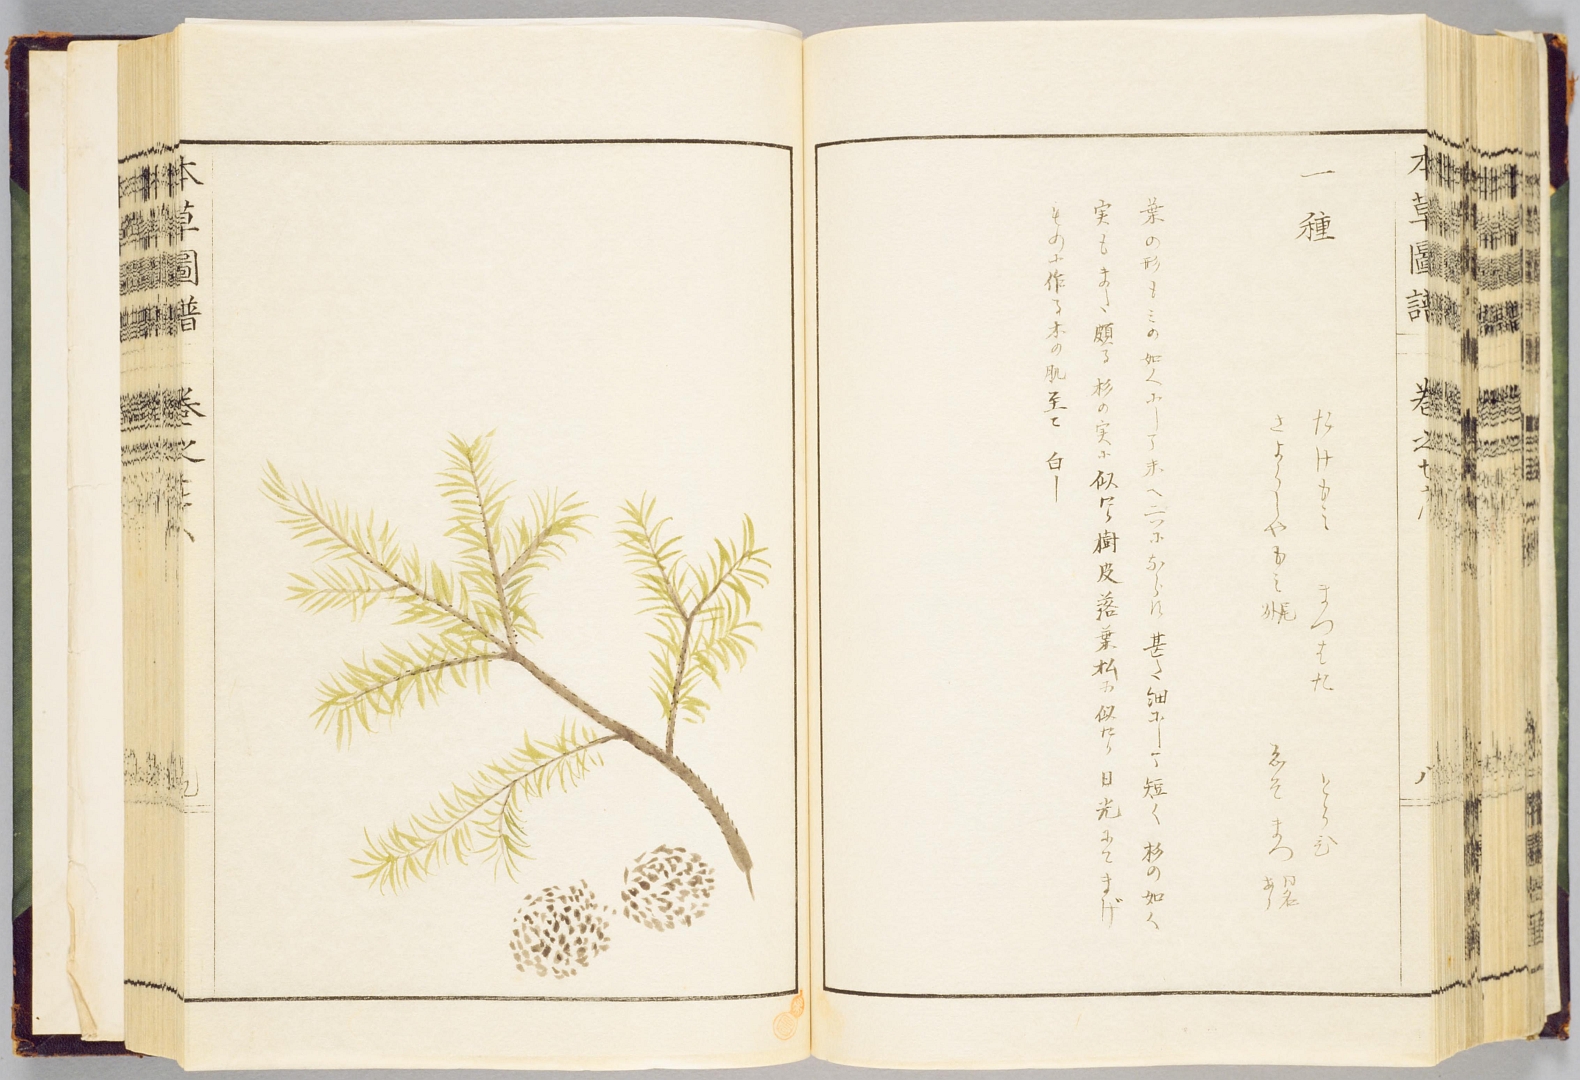 本草圖譜 巻之七十八 八
一種
たけもみ まつもた とらひ
さよらしやもみ ゑそまつ 同名あり
葉の形もミの如くにして末へ二つにならに甚た細にして短く杉の如く
実もまた頗る杉の実に似たり樹皮落葉松に似たり日光にてまげ
ものに作る木の肌至て白し
本草圖譜 巻之 九